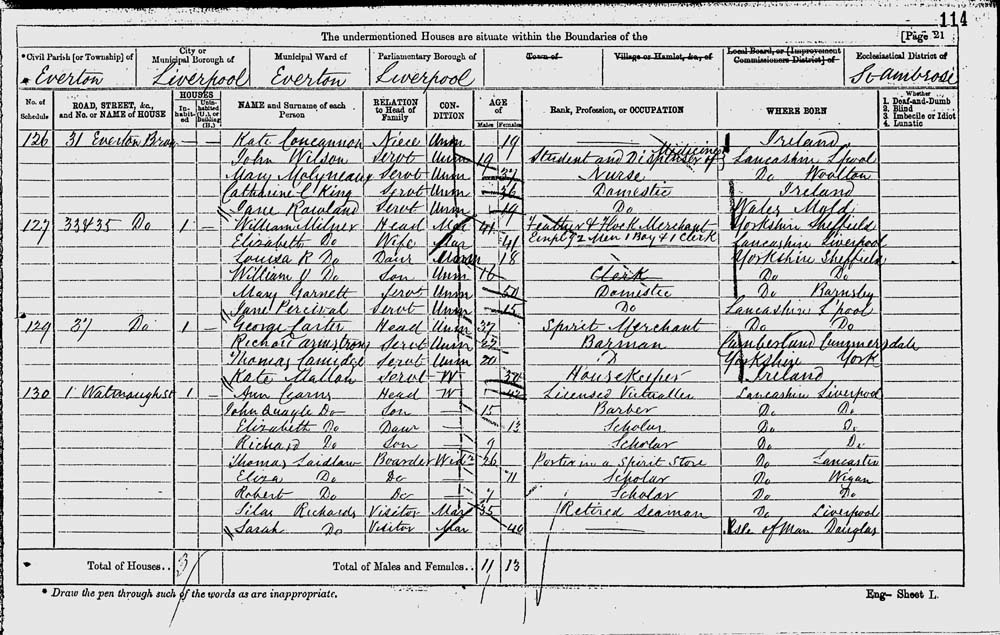 114
The undermentioned Houses are situate within the Boundaries of the
[Page 21
*Civil Parish [or Township] of
City or Municipal Borough of
Municipal Ward of
Parliamentary Borough of
Town of
Village or Hamlet, &c., of
Local Board, or [Improvement Commissioners District] of
Ecclesiastical District of
Everton Liverpool Everton Liverpool St Ambrose
No. of Schedule
ROAD, STREET, &c., and No. or NAME of HOUSE
HOUSES
Inhabited
Uninhabited (U.), or Building (B.)
NAME and Surname of each Person
RELATION to Head of Family
CONDITION
AGE of
Males Females
Rank, Profession, or OCCUPATION
WHERE BORN
Whether
1. Deaf-and-Dumb
2. Blind
3. Imbecile or Idiot
4. Lunatic
126 31 Everton Brow Kate Concannon Niece Unm 19 Ireland
John Wilson Servt Unm 19 Student and Dispenser of Medicine Lancashire L'pool
Mary Molyneaux Servt Unm 37 Nurse Do Woolton
Catharine C King Servt Unm 36 Domestic Ireland
Jane Rowland Servt Unm 19 Do Wales Mold
127 33 & 35 Do 1 – William Milner Head Mar 41 Feather & Flock Merchant Yorkshire Sheffield
Elizabeth Do Wife Mar 41 Empl 92 Men 1 Boy & 1 Clerk Lancashire Liverpool
Louisa R Do Daur Unm 18 Yorkshire Sheffield
William V Do Son Unm 16 Clerk Do Do
Mary Garnett Servt Unm 50 Domestic Do Barnsley
Jane Percival Servt Unm 15 Do Lancashire L'pool
129 37 Do 1 – George Carter Head Unm 37 Spirit Merchant Do Do
Richard Armstrong Servt Unm 27 Barman Cumberland Cummersdale
Thomas Camidge Servt Unm 20 D Yorkshire York
Kate Mallon Servt W Housekeeper Ireland
130 1 St 1 – Ann Head W 42 Licensed Victualler Lancashire Liverpool
John Quayle Do Son – 15 Barber Do Do
Elizabeth Do Daur – 13 Scholar Do Do
Richard Do Son – 9 Scholar Do Do
Thomas Laidlaw Boarder Widr 26 Porter in a Spirit Store Do Lancaster
Eliza Do Do – 11 Scholar Do Wigan
Robert Do Do – 7 Scholar Do Do
Silas Richards Visitor Mar 35 Retired Seaman Do Liverpool
Sarah Do Visitor Mar 40 – Isle of Man Douglas
Total of Houses.. 3
Total of Males and Females.. 11 13
* Draw the pen through such of the words as are inappropriate.
Eng– Sheet L.